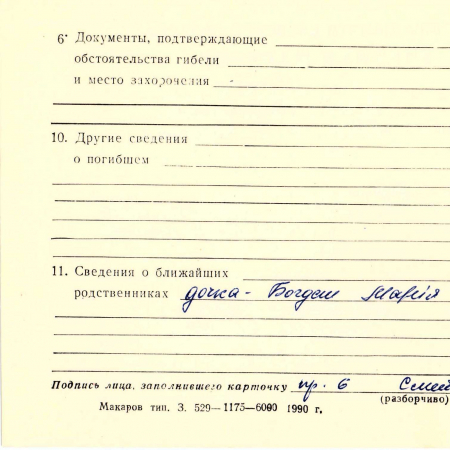 6· Документы, подтверждающие
обстоятельства гибели
и место захоронения
10. Другие сведения
о погибшем
11. Сведения о ближайших
родственниках дочка - Богдан Марія
Подпись лица, заполнившего карточку пр. б Смей
(разборчиво)
Макаров тип. З. 529—1175—6000 1990 г.